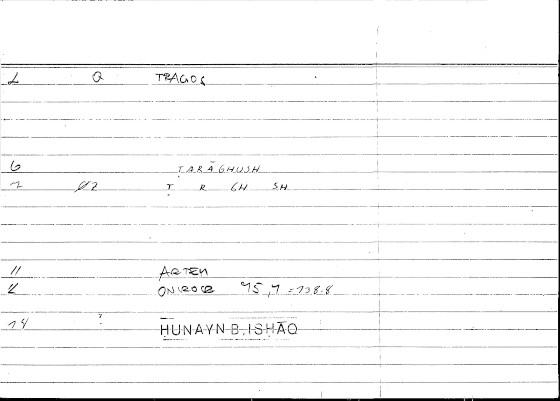 1 Q TRAGOS
6 ṬARĀGHUSH
7 02 Ṭ R GH SH
11 ARTEM
12 ONIROCR 75,7 = 138.8
14 HUNAYN B. ISHĀQ